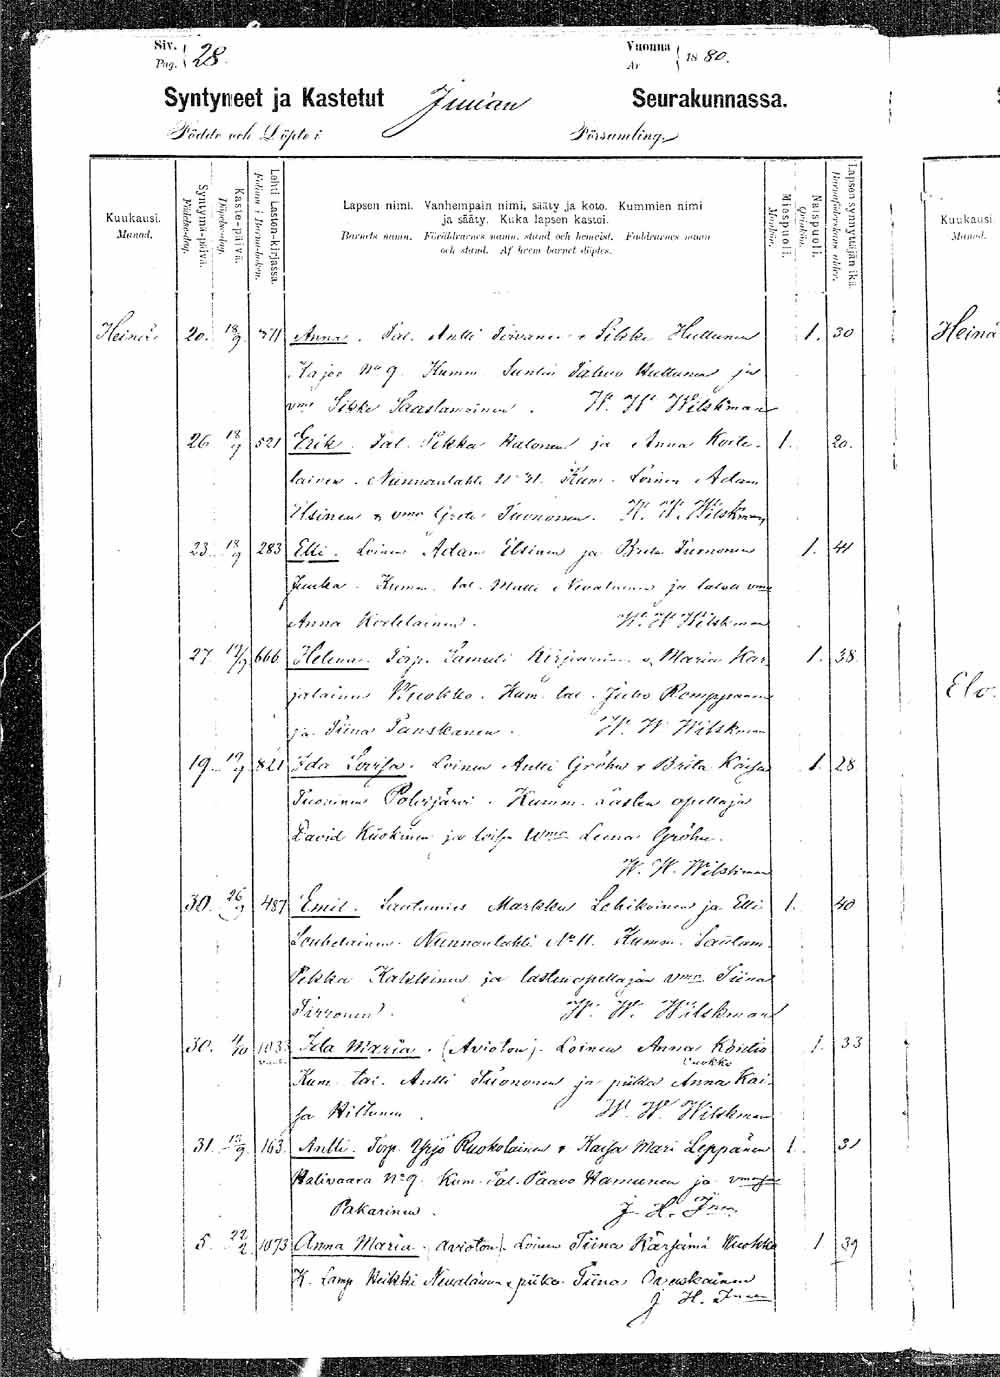 Siv. 28. Vuonna 1880.
Pag. Ar
Syntyneet ja Kastetut Juuan Seurakunnassa.
Födde och Döpte i Församling.
Kuukausi.
Manad.
Syntymä-päivä.
Födelse-dag.
Kaste-päivä.
Döpelse-dag.
Lehti Lasten-kirjassa.
Folium i Barnaboken.
Lapsen nimi. Vanhempain nimi, sääty ja koto. Kummien nimi
ja sääty. Kuka lapsen kastoi.
Barnets namn. Föräldrarnes namn, stand och hemvist. Faddrarnes namn
och stand. Af hvem barnet döptes.
Miespuoli.
Mankön.
Naispuoli.
Qvinkön.
Lapsen synnyttäjän ikä.
Barnaföderskans alder.
Kuukausi
Manad.
Heinä 20. 18/9 511 Anna. Tal. Antti Toivanen & Silkka Huttunen 1. 30 Heinä
Kajoo No 9. Kumm. Huttunen ja
vmo Saastamoinen. W. W. Wilskman
26 18/9 521 Erik. Tal. Pekka Halonen ja Anna Korte- 1. 20.
lainen. Nunnanlahti No 31. Kum. Loinen Adam
Elsinen & vmo Greta Tuononen. W. W. Wilskman
23 18/9 283 Elli. Loinen Adam Elsinen ja Brita Tuononen 1. 41
Juuka. Kumm. tal. Matti Nevalainen ja talon vmo
Anna Kortelainen. W. W. Wilskman
27. 19/9 666 Helena. Torp. Samuli Kirjavainen & Maria Kar- 1. 38.
jalainen Vuokko. Kum. tal. Juho Romppanen Elo.
ja Tiina Tanskanen. W. W. Wilskman
19. 19/9 821 Ida Lovisa. Loinen Antti Gröhn & Brita Kaisa 1. 28
Tuovinen Polvijärvi. Kumm. Lasten opettaja
David Kuokinen ja vmo Leena Gröhn.
W. W. Wilskman
30. 26/9 487 Emil. Lautamies Markku Lehikoinen ja Elli 1. 40
Louhelainen. Nunnanlahti No 11. Kumm. Lautam.
Pekka Kakkinen ja lastenopettajan vmo Tiina
Tarronen. W. W. Wilskman
30. 4/10 1033 Ida Maria. (Avioton). Loinen Anna Koistin 1. 33
Vuokko
Kum. tal. Antti Tuononen ja piika Anna Kai-
sa Hiltunen. W. W. Wilskman
31. 163 Antti. Torp. Yrjö Ruokolainen & Kaisa Mari Leppänen 1 31
Halivaara No 9. Kum. Tal. Paavo Hamunen ja
Pakarinen. J. H.
5. 22/2 1073 Anna Maria (avioton). Loinen Tiina Kärjämä Wuokko 1 39
K. Lamp. Heikki Nevalainen & piika Tiina
J. H.